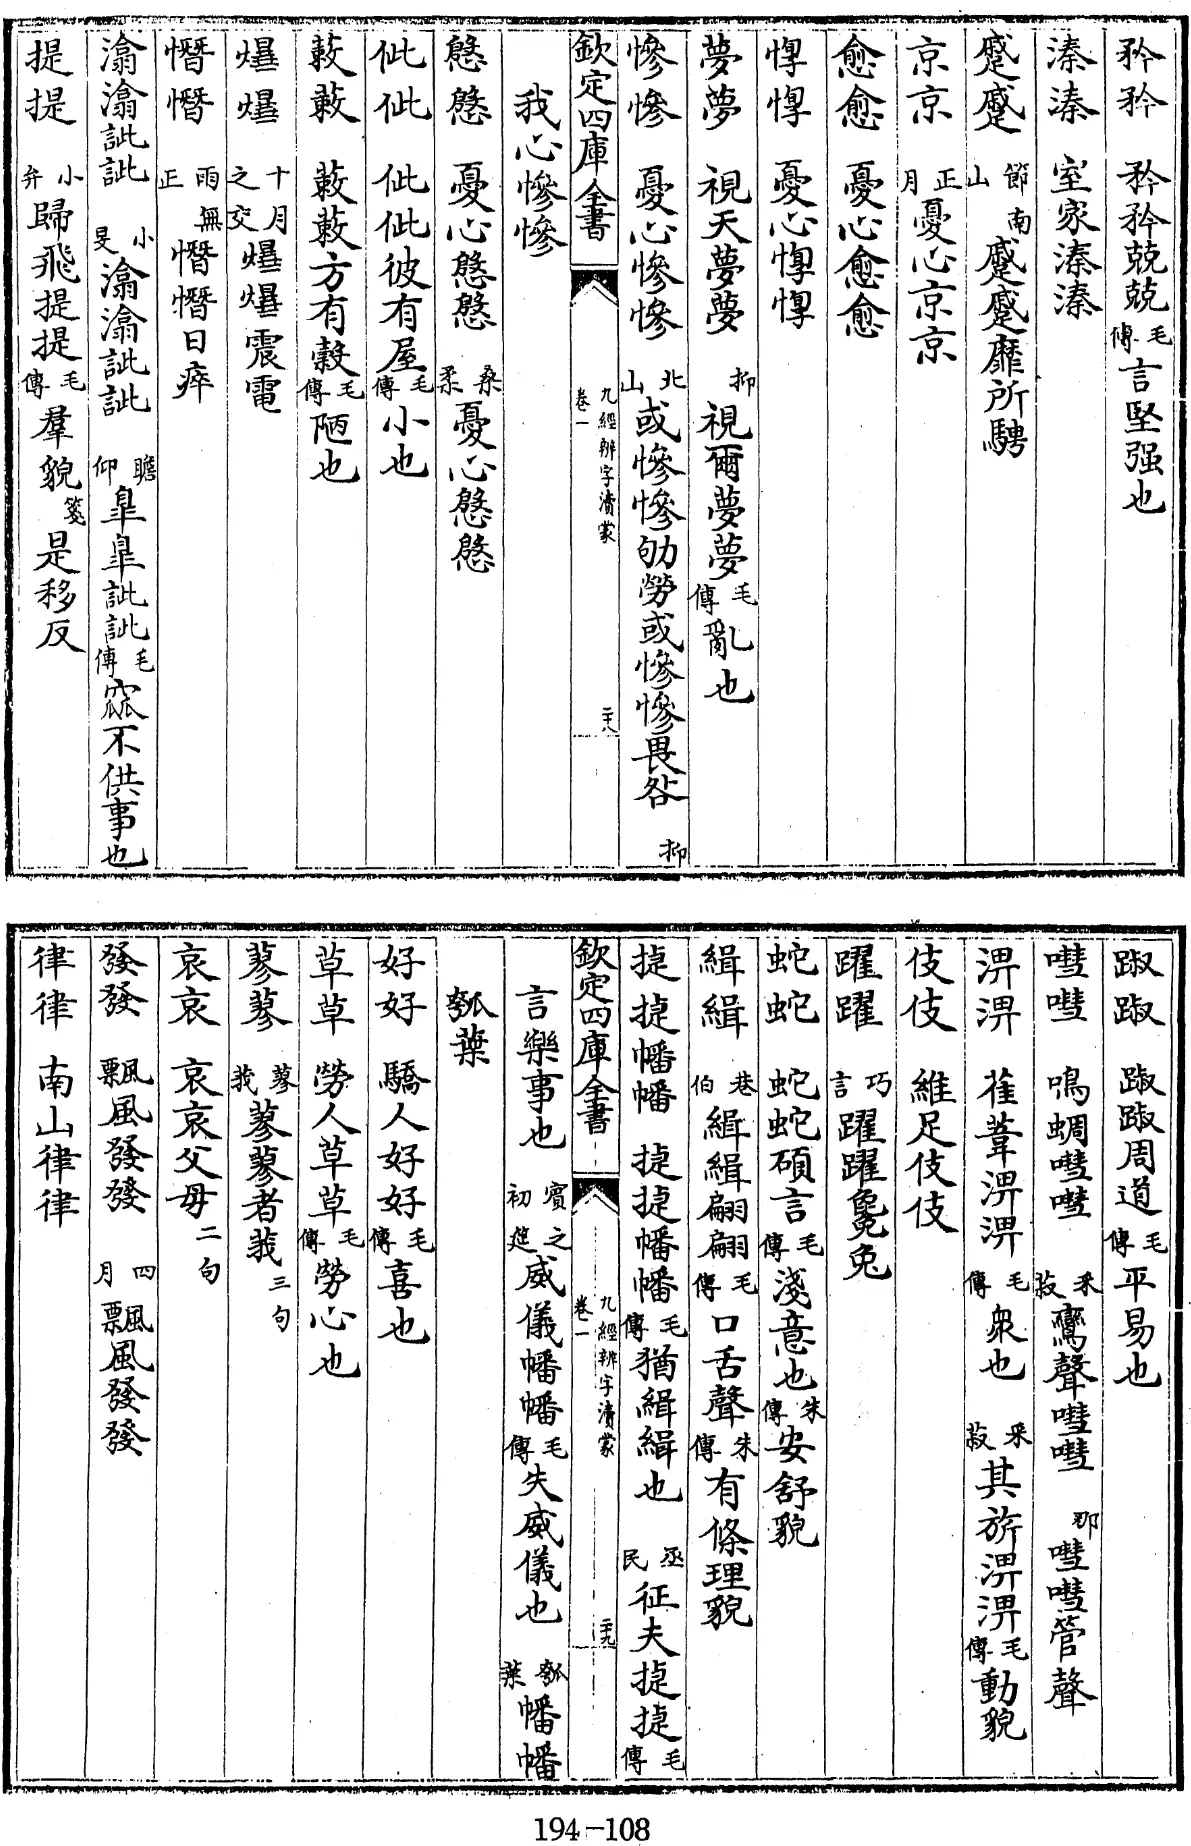 矜矜　矜矜兢兢毛傳言堅强也
溱溱　室家溱溱
蹙蹙節南山蹙蹙靡所騁
京京正月憂心京京
愈愈　憂心愈愈
惸惸　憂心惸惸
夢夢　視天夢夢　抑視爾夢夢毛傳亂也
慘慘　憂心慘慘　北山或慘慘劬勞或慘慘畏咎　抑
欽定四庫全書　九經辨字瀆蒙卷一　二十八
我心慘慘
慇慇　憂心慇慇　桑柔憂心慇慇
佌佌　佌佌彼有屋毛傳小也
蔌蔌　蔌蔌方有穀毛傳陋也
爆爆十月之交爆爆震電
憯憯雨無正憯憯日瘁
潝潝訿訿小旻潝潝訿訿　瞻仰皐皐訿訿毛傳窳不供事也
提提小弁歸飛提提毛傳羣貌箋是移反
踧踧　踧踧周道毛傳平易也
嘒嘒　鳴蜩嘒嘒　采菽鸞聲嘒嘒　那嘒嘒管聲
淠淠　萑葦淠淠毛傳衆也　采菽其旂淠淠毛傳動貌
伎伎　維足伎伎
躍躍巧言躍躍毚兔
蛇蛇　蛇蛇碩言毛傳淺意也朱傳安舒貌
緝緝巷伯緝緝翩翩毛傳口舌聲朱傳有條理貌
捷捷幡幡　捷捷幡幡毛傳猶緝緝也　烝民征夫捷捷毛傳
欽定四庫全書　九經辨字瀆蒙卷一　二十九
言樂事也　賓之初筵威儀幡幡毛傳失威儀也　瓠葉幡幡
瓠葉
好好　驕人好好毛傳喜也
草草　勞人草草毛傳勞心也
蓼蓼蓼莪蓼蓼者莪三句
哀哀　哀哀父母二句
發發　飄風發發　四月飄風發發
律律　南山律律
194-108